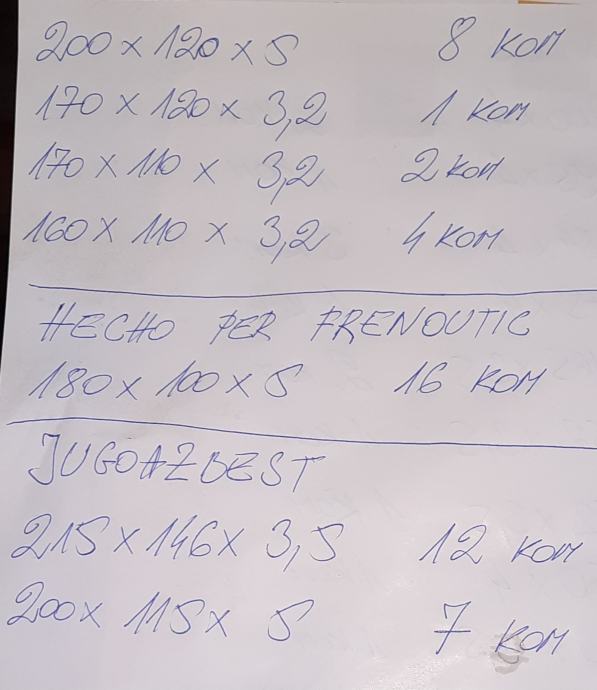 200 x 120 x 5 8 KOM
170 x 120 x 3,2 1 KOM
170 x 110 x 3,2 2 KOM
160 x 110 x 3,2 4 KOM
HECHO PER FRENOUTIC
180 x 100 x 5 16 KOM
JUGOAZBEST
215 x 146 x 3,5 12 KOM
200 x 115 x 5 7 KOM